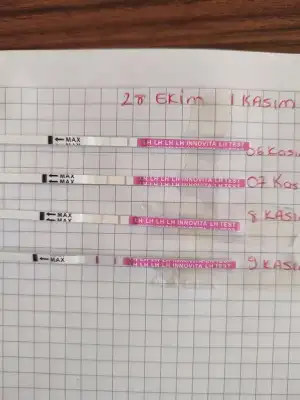 28 EKİM 1 KASIM
←MAX LH LH LH LH INNOVITA LH TEST 06 Kasım
←MAX LH LH LH INNOVITA LH TEST 07 Kas
←MAX LH LH LH LH INNOVITA LH TEST 8 KASIM
←MAX LH LH LH LH INNOVITA LH TEST 9 KASIM